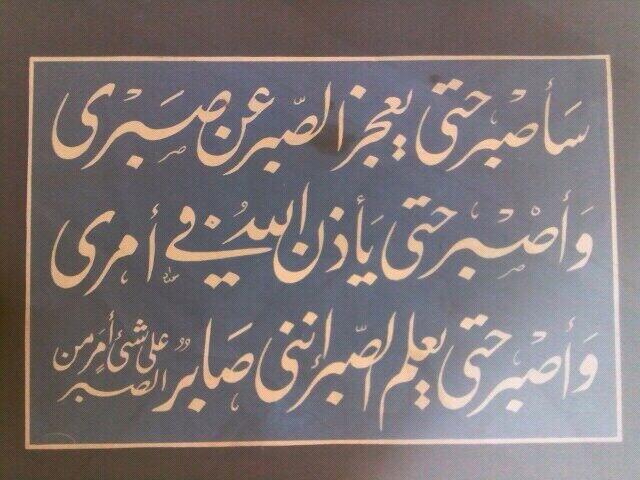 سَأصْبر حتى يعجز الصّبر عن صَبَرْى
وَأصْبر حتى يَأذن اللهُ في أمرى
وَأصْبر حتى يعلم الصّبر إننى صَابرٌ على شئ أمَرِ من الصبر